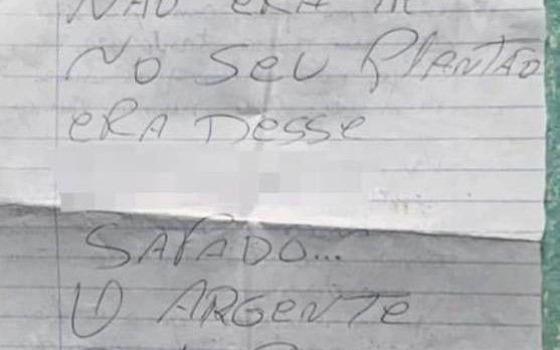 NÃO ERA
NO SEU PLANTÃO
ERA DESSE
SAFADO...
O ARGENTE